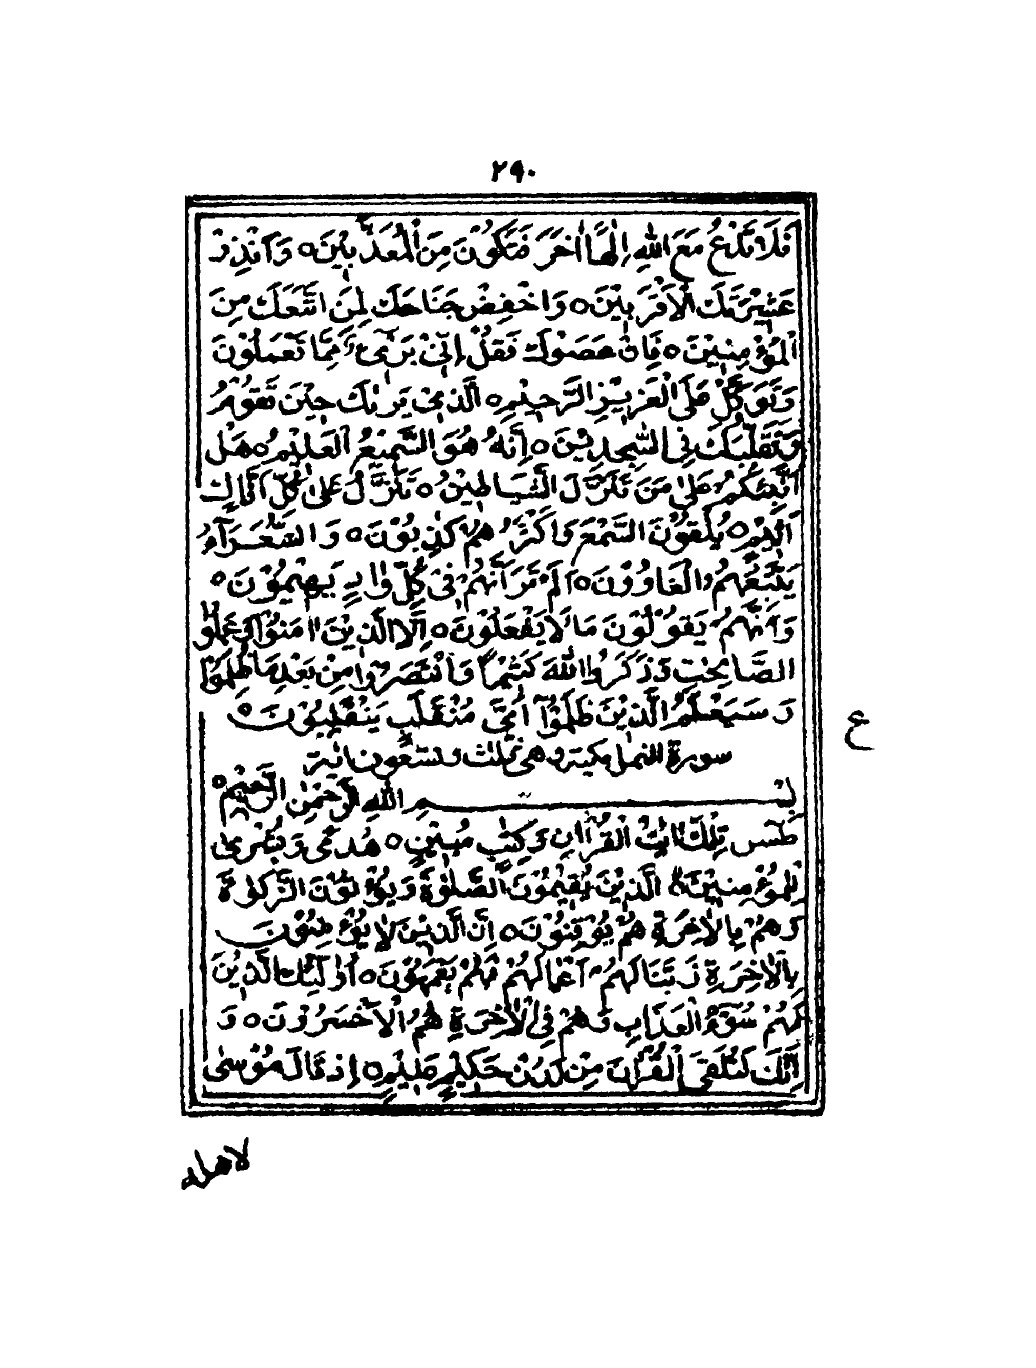 ٢٩٠
فَلَا تَدْعُ مَعَ اللّٰهِ اِلٰهًا اٰخَرَ فَتَكُوْنَ مِنَ الْمُعَذَّبِيْنَ ○ وَاَنْذِرْ
عَشِيْرَتَكَ الْاَقْرَبِيْنَ ○ وَاخْفِضْ جَنَاحَكَ لِمَنِ اتَّبَعَكَ مِنَ
الْمُؤْمِنِيْنَ ○ فَاِنْ عَصَوْكَ فَقُلْ اِنِّيْ بَرِيْٓءٌ مِّمَّا تَعْمَلُوْنَ
وَتَوَكَّلْ عَلَى الْعَزِيْزِ الرَّحِيْمِ ○ الَّذِيْ يَرٰىكَ حِيْنَ تَقُوْمُ
وَتَقَلُّبَكَ فِي السّٰجِدِيْنَ ○ اِنَّهٗ هُوَ السَّمِيْعُ الْعَلِيْمُ ○ هَلْ
اُنَبِّئُكُمْ عَلٰى مَنْ تَنَزَّلُ الشَّيٰطِيْنُ ○ تَنَزَّلُ عَلٰى كُلِّ اَفَّاكٍ
اَثِيْمٍ ○ يُّلْقُوْنَ السَّمْعَ وَاَكْثَرُهُمْ كٰذِبُوْنَ ○ وَالشُّعَرَآءُ
يَتَّبِعُهُمُ الْغَاوُوْنَ ○ اَلَمْ تَرَ اَنَّهُمْ فِيْ كُلِّ وَادٍ يَّهِيْمُوْنَ ○
وَاَنَّهُمْ يَقُوْلُوْنَ مَا لَا يَفْعَلُوْنَ ○ اِلَّا الَّذِيْنَ اٰمَنُوْا وَعَمِلُوا
الصّٰلِحٰتِ وَذَكَرُوا اللّٰهَ كَثِيْرًا وَّانْتَصَرُوْا مِنْ بَعْدِ مَا ظُلِمُوْا
وَسَيَعْلَمُ الَّذِيْنَ ظَلَمُوْٓا اَيَّ مُنْقَلَبٍ يَّنْقَلِبُوْنَ ○
ع
سورة النمل مكية وهى ثلث وتسعون اية
بِسْمِ اللّٰهِ الرَّحْمٰنِ الرَّحِيْمِ ○
طٰسٓ تِلْكَ اٰيٰتُ الْقُرْاٰنِ وَكِتَابٍ مُّبِيْنٍ ○ هُدًى وَّبُشْرٰى
لِلْمُؤْمِنِيْنَ ○ الَّذِيْنَ يُقِيْمُوْنَ الصَّلٰوةَ وَيُؤْتُوْنَ الزَّكٰوةَ
وَهُمْ بِالْاٰخِرَةِ هُمْ يُوْقِنُوْنَ ○ اِنَّ الَّذِيْنَ لَا يُؤْمِنُوْنَ
بِالْاٰخِرَةِ زَيَّنَّا لَهُمْ اَعْمَالَهُمْ فَهُمْ يَعْمَهُوْنَ ○ اُولٰٓئِكَ الَّذِيْنَ
لَهُمْ سُوْٓءُ الْعَذَابِ وَهُمْ فِي الْاٰخِرَةِ هُمُ الْاَخْسَرُوْنَ ○ وَ
اِنَّكَ لَتُلَقَّى الْقُرْاٰنَ مِنْ لَّدُنْ حَكِيْمٍ عَلِيْمٍ ○ اِذْ قَالَ مُوْسٰى
لاهله